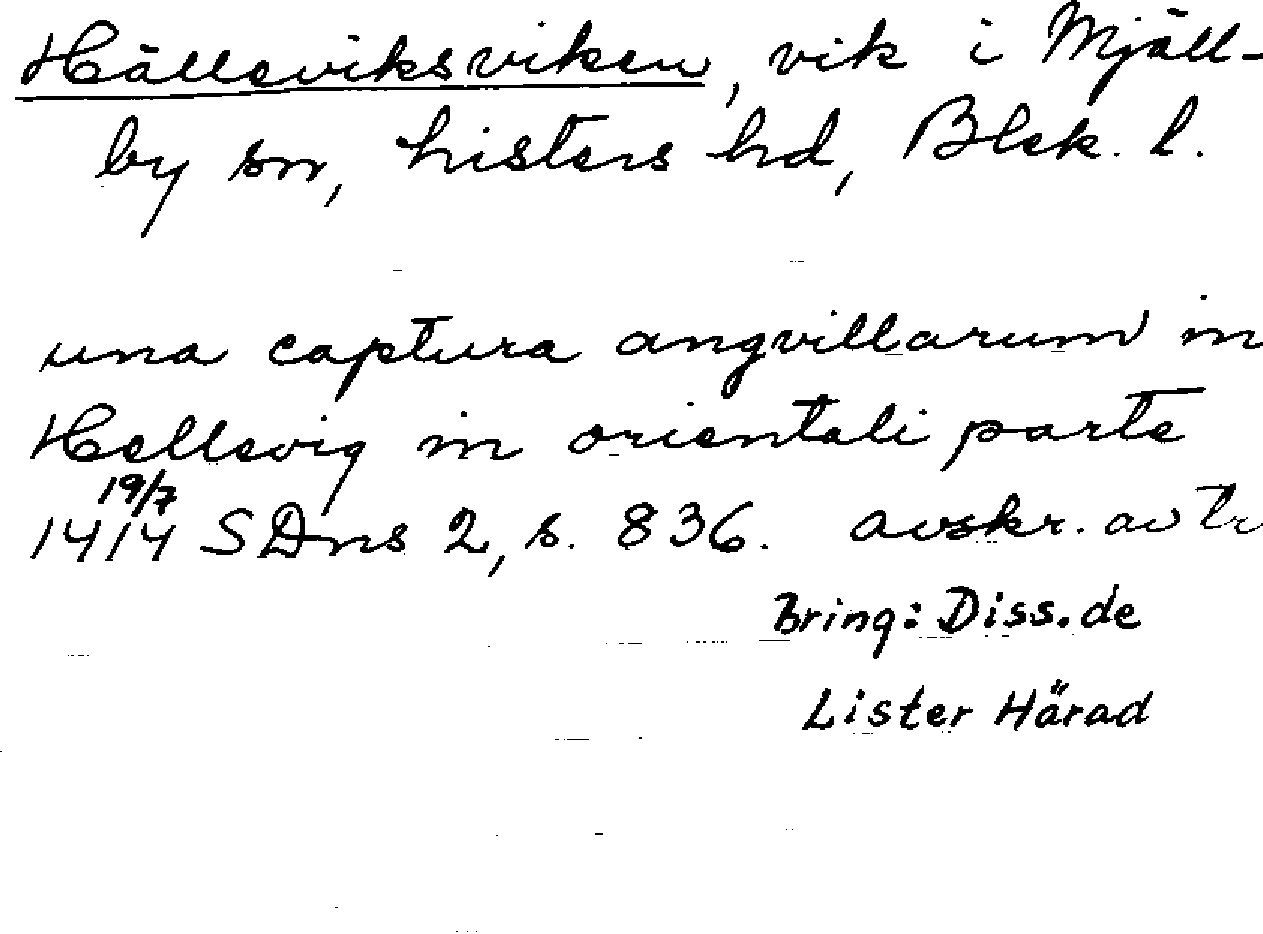 Hälleviksviken, vik i Mjäll-
by sn, Listers hd, Blek. l.
una captura angvillarum in
Hellevig in orientali parte
19/7
1414 SDns 2, s. 836. avskr. av tr
Bring: Diss. de
Lister Härad